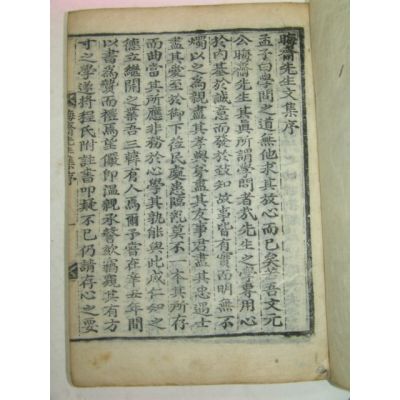 晦齋先生文集序
孟子曰學問之道無他求其放心而已矣若吾文元
公晦齋先生其眞所謂學問者哉先生之學專用心
於內基於發於致知故事皆有實而明無不
燭以之爲親盡其孝與盡其友事君盡其忠遇士
盡其愛至於御下位民處患臨亂莫不一本其所存
而曲當其所應非務於心學其孰能與此成仁知之
德立繼開之業吾三韓有人焉爾予嘗在辛丑年間
以書爲贄而禮焉望儼卽溫親承謦欬竊其有方
寸之學遂將程氏附註書叩疑不已仍請存心之要
晦齋先生集序 一